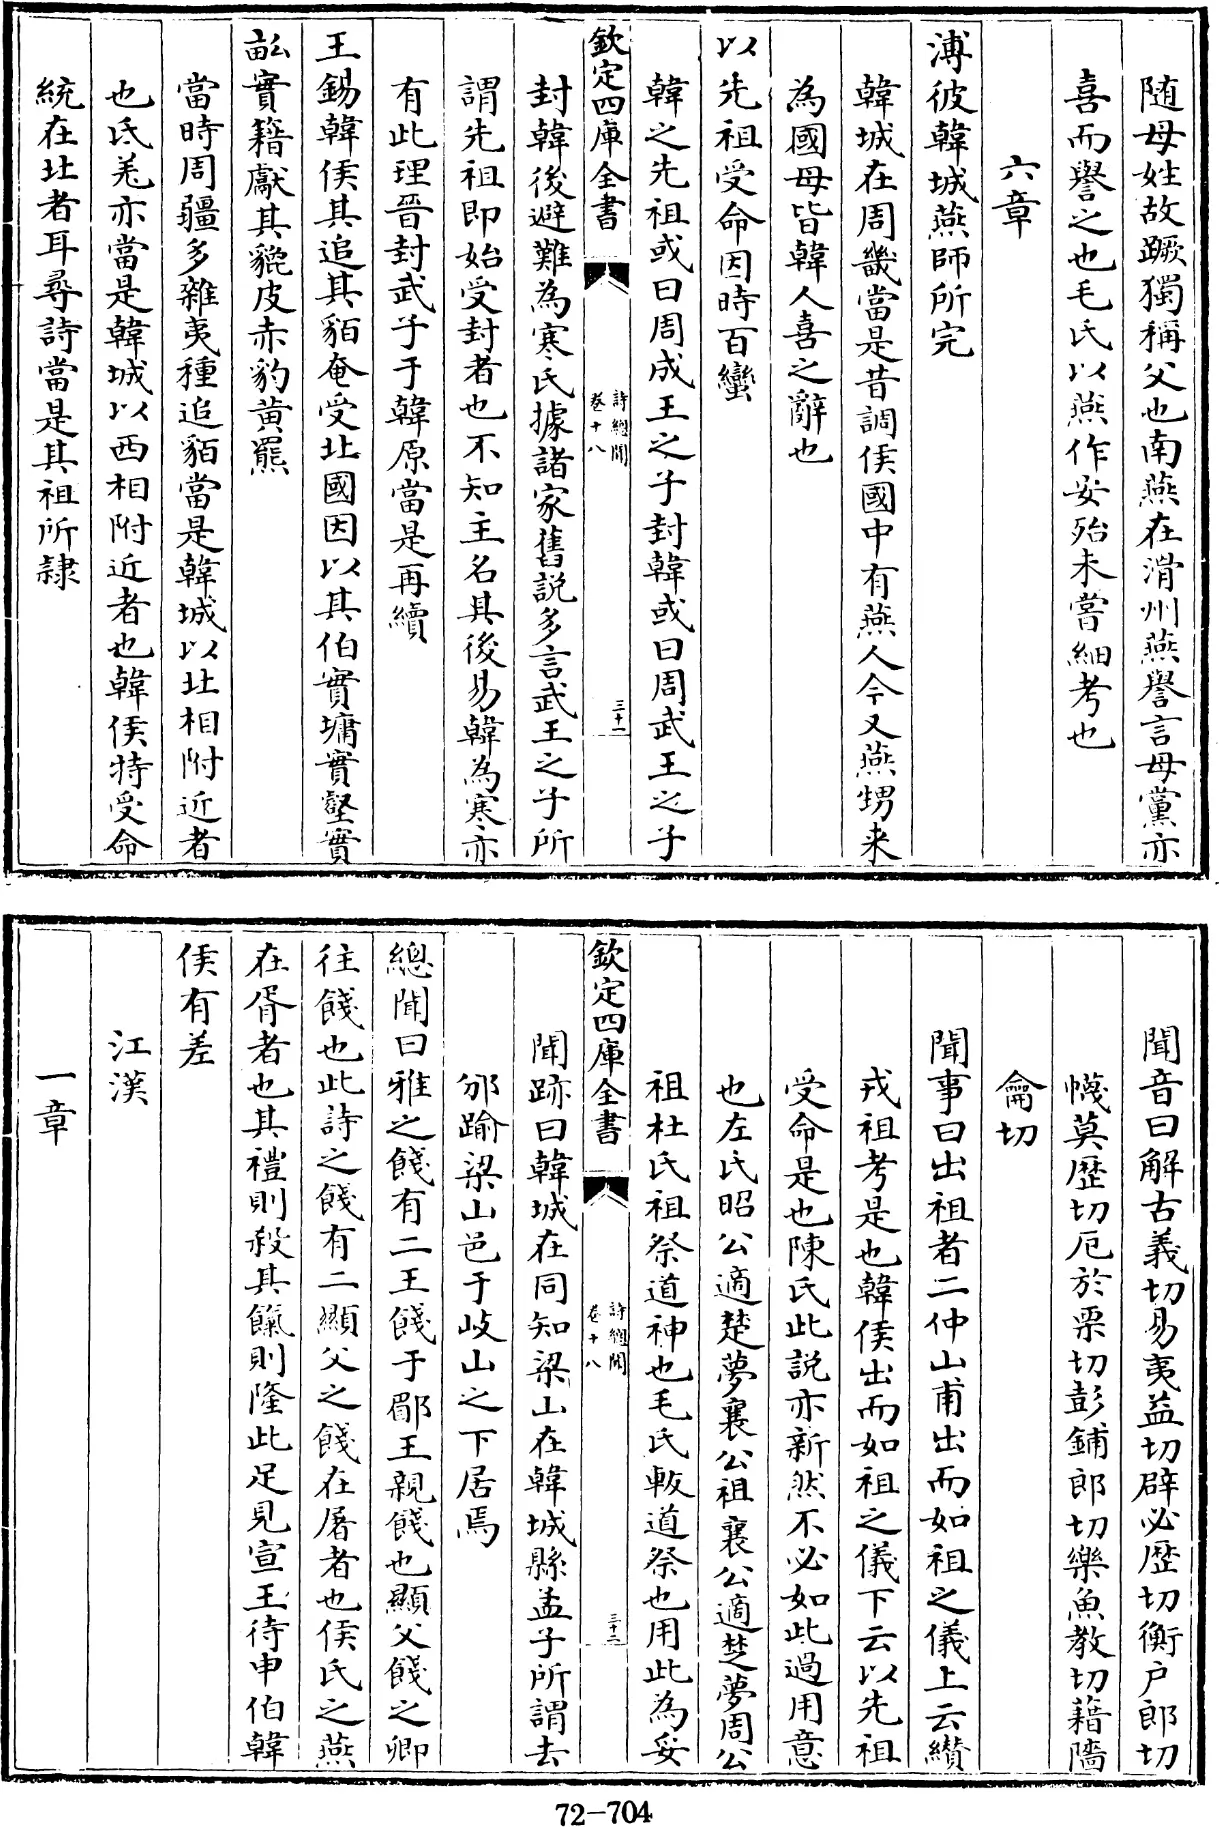 随母姓故蹶獨稱父也南燕在滑州燕譽言母黨亦
喜而譽之也毛氏以燕作安殆未嘗細考也
六章
溥彼韓城燕師所完
韓城在周畿當是昔調侯國中有燕人今又燕甥来
為國母皆韓人喜之辭也
以先祖受命因時百蠻
韓之先祖或曰周成王之子封韓或曰周武王之子
欽定四庫全書
詩總聞
卷十八
三十二
封韓後避難為寒氏據諸家舊説多言武王之子所
謂先祖即始受封者也不知主名其後易韓為寒亦
有此理晉封武子于韓原當是再續
王錫韓侯其追其貊奄受北國因以其伯實墉實壑實
畝實籍獻其貔皮赤豹黄羆
當時周疆多雜夷種追貊當是韓城以北相附近者
也氐羌亦當是韓城以西相附近者也韓侯特受命
統在北者耳尋詩當是其祖所隷
聞音曰解古義切易夷益切辟必歴切衡户郎切
幭莫歴切厄於栗切彭鋪郎切樂魚教切籍牆
龠切
聞事曰出祖者二仲山甫出而如祖之儀上云纘
戎祖考是也韓侯出而如祖之儀下云以先祖
受命是也陳氏此説亦新然不必如此過用意
也左氏昭公適楚夢襄公祖襄公適楚夢周公
祖杜氏祖祭道神也毛氏軷道祭也用此為妥
欽定四庫全書
詩總聞
卷十八
三十三
聞跡曰韓城在同知梁山在韓城縣孟子所謂去
邠踰梁山邑于岐山之下居焉
總聞曰雅之餞有二王餞于郿王親餞也顯父餞之卿
往餞也此詩之餞有二顯父之餞在屠者也侯氏之燕
在胥者也其禮則殺其餼則隆此足見宣王待申伯韓
侯有差
江漢
一章
72-704